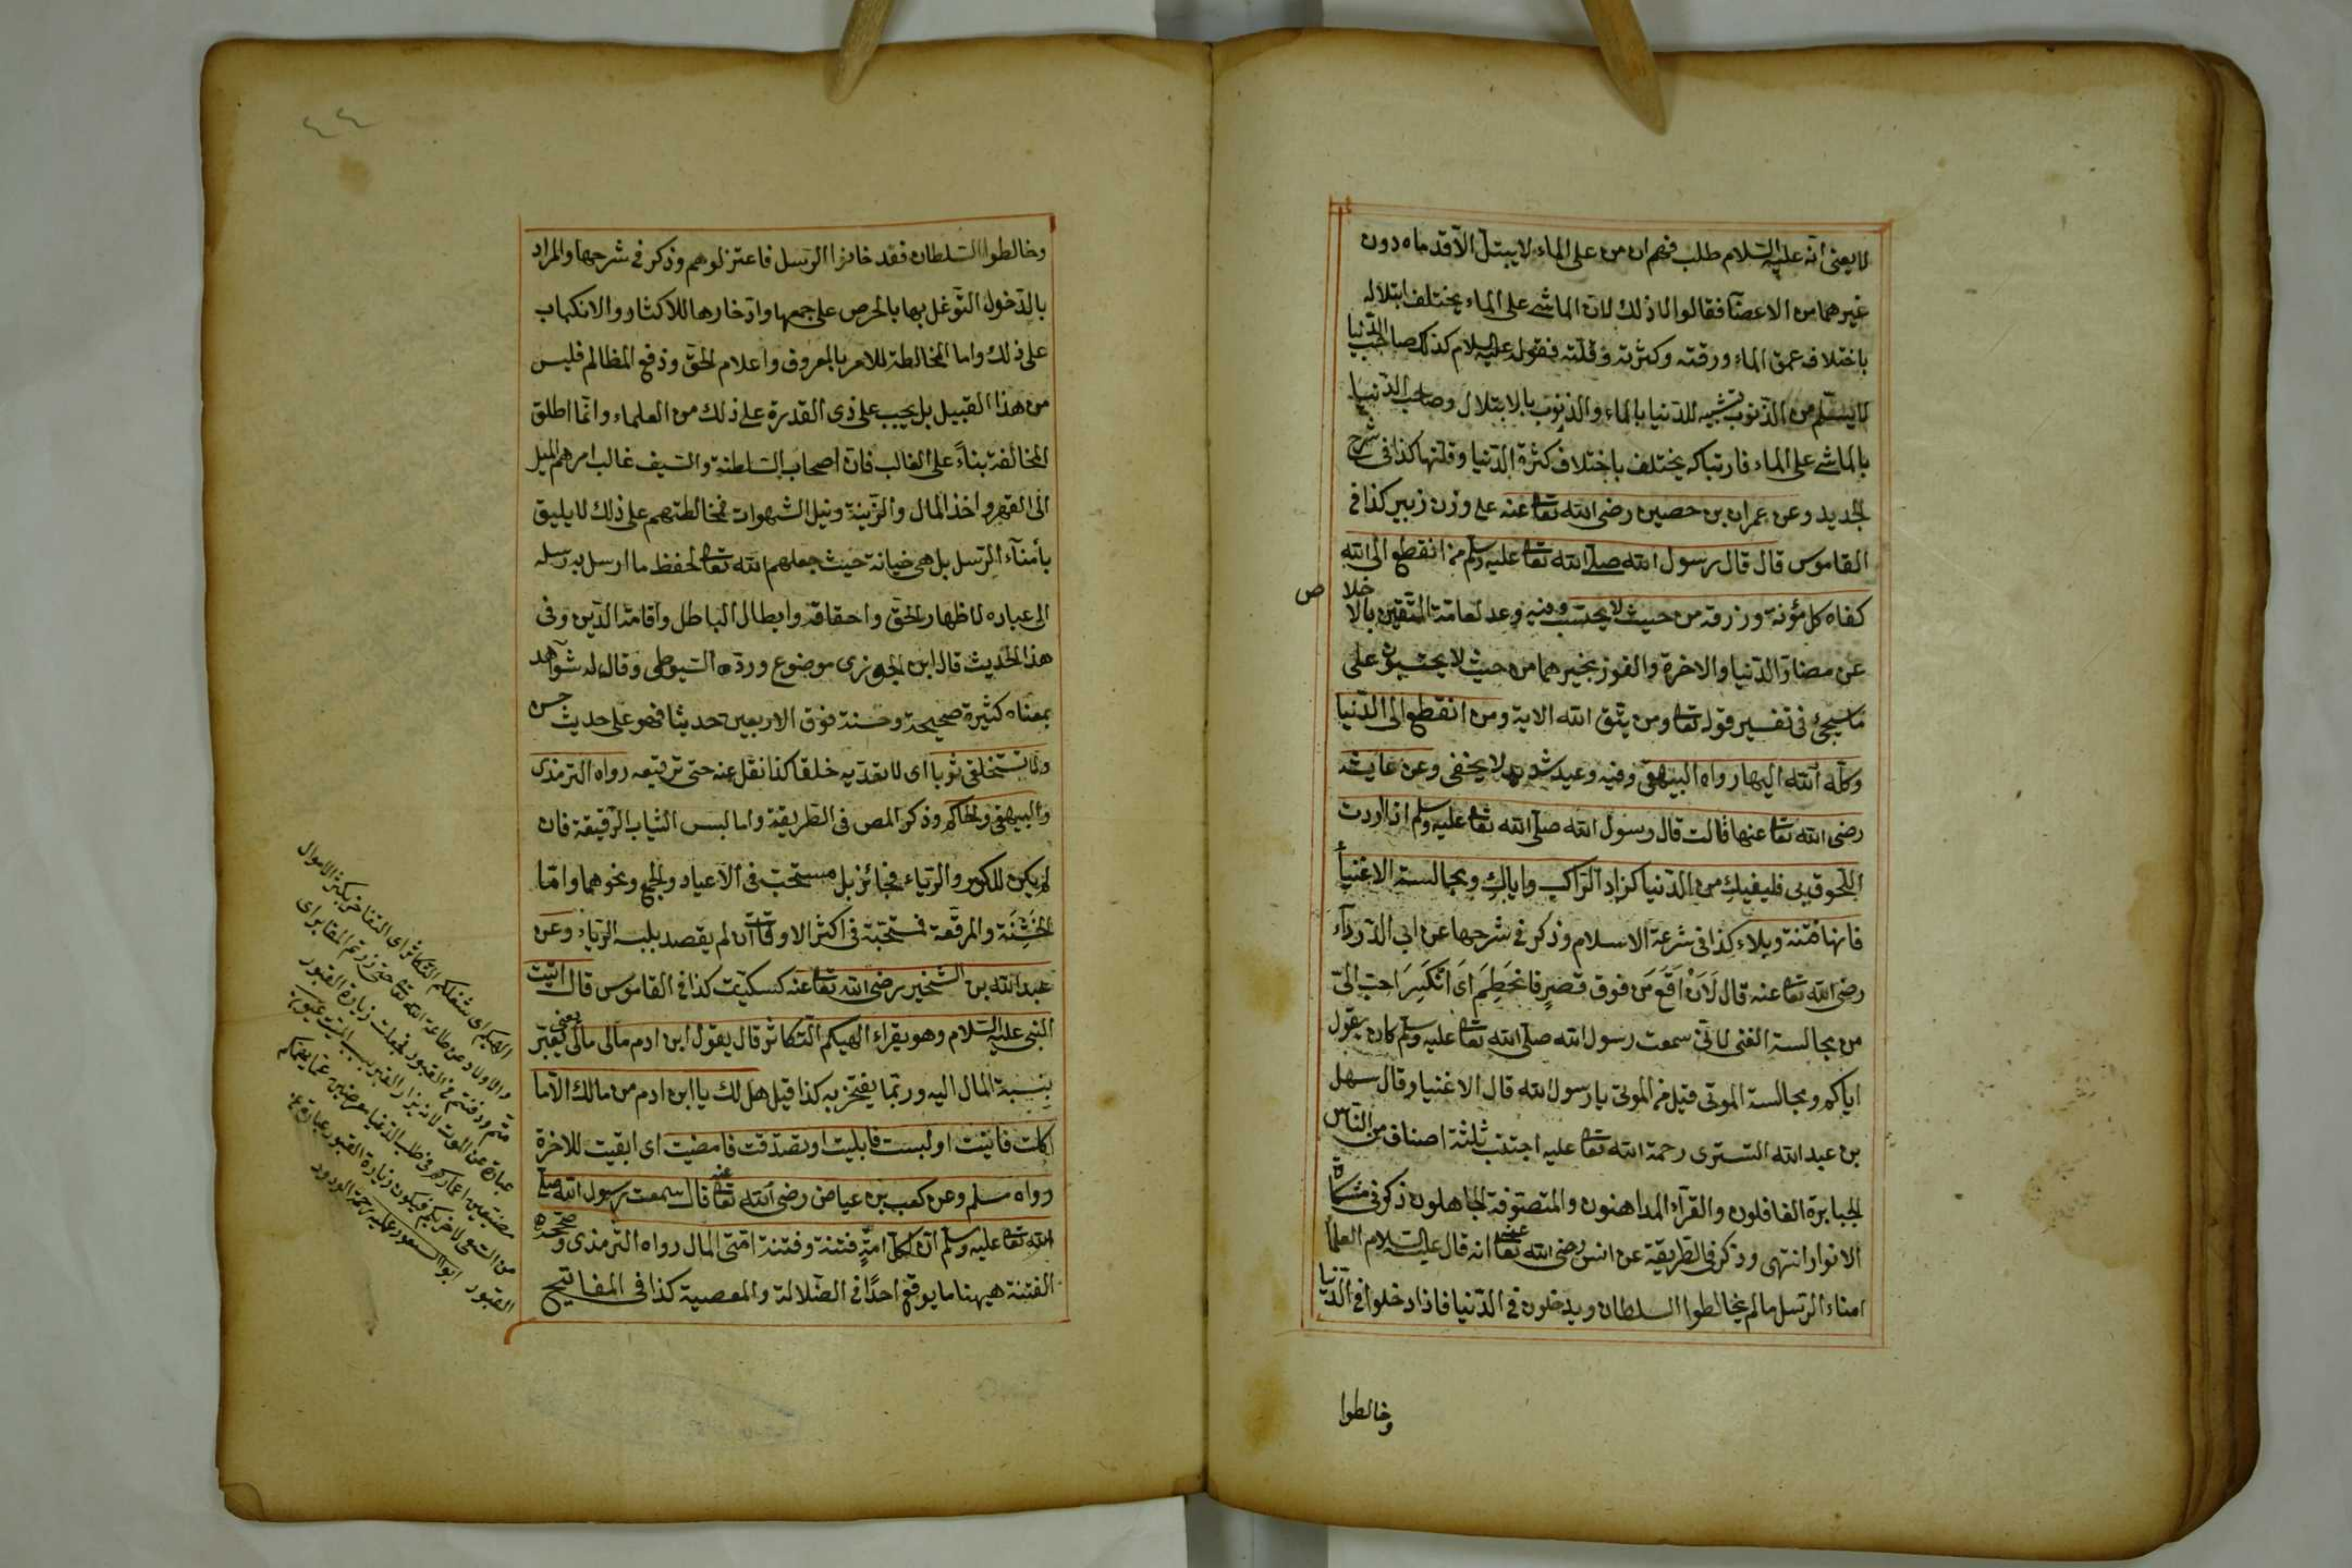 لا يعنى انه عليه السلام طلب فهم ان من على الماء لا يبتل الا قدماه دون
غيرهما من الاعضآ فقالوا لا ذلك لان الماشى على الماء يختلف ابتلاله
باختلاف عمق الماء ورقته وكثرته وقلته فقوله عليه السلام كذلك صاحب الدنيا
لا يسلم من الذنوب تشبيه للدنيا بالماء والذنوب بالابتلال وصاحب الدنيا
بالماشى على الماء فارتباكه يختلف باختلاف كثرة الدنيا وقلتها كذا فى شرح
الجديد وعن عمران بن حصين رضى الله تعا عنه على وزن زبير كذا فى
القاموس قال قال رسول الله صلى الله تعا عليه وسلم من انقطع الى الله
كفاه كل مؤنة ورزقه من حيث لا يحتسب وفيه وعد لعامة المتقين بالا
خلا ص
عن مضار الدنيا والاخرة والفوز بخيرهما من حيث لا يحتسبون على
ما سيجئ فى تفسير قوله تعا ومن يتق الله الاية ومن انقطع الى الدنيا
وكله الله اليها رواه البيهقى وفيه وعيد شديد لا يخفى وعن عايشه
رضى الله تعا عنها قالت قال رسول الله صلى الله تعا عليه وسلم ان اردت
اللحوق بى فليفيك من الدنيا كزاد الراكب واياك ومجالسة الاغنيأ
فانها فتنة وبلاء كذا فى شرعة الاسلام وذكر فى شرحها عن ابى الدردآء
رضى الله تعا عنه قال لَاَنْ اَقَعَ مَن فوق قصرٍ فانحَطِمَ اَى اَنْكَسِرَ احبّ الىّ
من مجالسة الغنى لانى سمعت رسول الله صلى الله تعا عليه وسلم كان يقول
اياكم ومجالسة الموتى قيل من الموتى يا رسول الله قال الاغنيا وقال سهل
بن عبد الله التسترى رحمة الله تعا عليه اجتنب ثلثة اصناف من الناس
الجبابرة الغافلون والقرآء المداهنون والمتصوفة الجاهلون ذكر فى مشكاة
الانوار انتهى وذكر فى الطريقة عن انس رضى الله تعا عنه انه قال عليه السلام العلمأ
امناء الرسل ما لم يخالطوا السلطان ويدخلون فى الدنيا فاذا دخلوا فى الدنيا
وخالطوا
٤٤
وخالطوا السلطان فقد خانوا الرسل فاعتزلوهم وذكر فى شرحها والمراد
بالدخول التوغل بها بالحرص على جمعها وادخارها للاكثار والانكباب
على ذلك واما المخالطة للامر بالمعروف واعلام الحق ودفع المظالم فليس
من هذا القبيل بل يجب على ذى القدرة على ذلك من العلماء وانما اطلق
المخالفة بناءً على الغالب فان اصحاب السلطنة والسيف غالب امرهم الميل
الى القهر واخذ المال والزينة ونيل الشهوات فمخالطتهم على ذلك لا يليق
بأمنآء الرسل بل هى خيانة حيث جعلهم الله تعا لحفظ ما ارسل به رسله
الى عباده لاظهار الحق واحقاقه وابطال الباطل واقامة الدين وفى
هذا الحديث قال ابن الجوزى موضوع ورده السيوطى وقال له شواهد
بمعناه كثيرة صحيحة وحسنة فوق الاربعين حديثا فهو على حديث حسن
ولا تستخلقى ثوبا اى لا تعديه خلقا كذا نقل عنه حتى ترقيعه رواه الترمذى
والبيهقى والحاكم وذكر المص فى الطريقة واما لبس الثياب الرقيقة فان
لم يكن للكبر والرياء فجائز بل مستحب فى الاعياد والجمع ونحوهما واما
الخَشِنَة والمرقعة فمستحبة فى اكثر الاوقات ان لم يقصد بلبسه الرياء وعن
عبد الله بن الشخير رضى الله تعا عنه كسكّيت كذا فى القاموس قال اتيت
النبى عليه السلام وهو يقراء الهيكم التكاثر قال يقول ابن ادم مالى مالى يعنى يعتبر
بنسبة المال اليه وربما يفتخر به كذا قيل هل لك يا ابن ادم من مالك الا ما
اكلت فافنيت او لبست فابليت او تصدقت فامضيت اى ابقيت للاخرة
رواه مسلم وعن كعب بن عياض رضى الله تعا عنه قال سمعت رسول الله صلى
الله تعا عليه وسلم ان لكل امةٍ فتنة وفتنة امتى المال رواه الترمذى وصححه
الفتنة هيهنا ما يوقع احدًا فى الضلالة والمعصية كذا فى المفاتيح
الهيكم اى شغلكم التكاثر اى التفاخر بكثرة الاموال
والاولاد عن طاعة الله تعا حتى زرتم المقابر اى
متم ودفنتم فى القبور فجعلت زيارة القبور
عبارة عن الموت
مضيعين اعماركم فى طلب الدنيا معرضين عما يهمكم
من السعى لاخريكم فيكون زيارة القبور عبارة عن
القبور ابو السعود عليه رحمة الودود